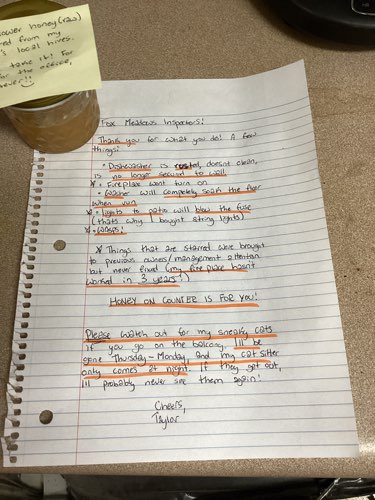 lower honey (raw)
ed from my
's local hives.
take it! For
for the office,
ever!
Fox Meadows Inspectors!
Thank you for what you do! A few
things:
• Dishwasher is rusted, doesnt clean,
is no longer secured to wall
* • Fireplace wont turn on
• Washer will completely soak the floor
when run
* • lights to patio will blow the fuse
(thats why I bought string lights)
* • Wasps!
* Things that are starred were brought
to previous owners/management attention
but never fixed (my fire place hasn't
worked in 3 years!)
HONEY ON COUNTER IS FOR YOU!
Please watch out for my sneaky cats
if you go on the balcony. I'll be
gone Thursday - Monday, and my cat sitter
only comes at night. If they get out,
I'll probably never see them again!
Cheers,
Taylor